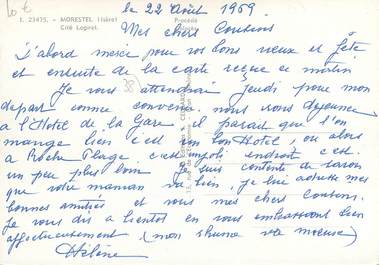 10 €
I. 23475. - MORESTEL (Isère)
Cité Logiret.
Procédé
le 22 Août 1969
Mes chers Cousins
D'abord merci pour vos bons vœux et fête
et ensuite de la carte reçue ce matin
Je vous attendrai jeudi pour mon
départ comme convenu. nous vous déjeuner
a l'Hotel de la Gare il parait que l'on
mange bien c'est un bon Hotel, ou alors
a Roche Plage c'est impoli endroit c'est
un peu plus loin. Je suis contente de savoir
que votre maman va bien, je lui adresse mes
bonnes amitiés et vous mes chers Cousins.
Je vous dis a bientot en vous embrassant bien
affectueusement (mon rhume va mieux)
Hélène